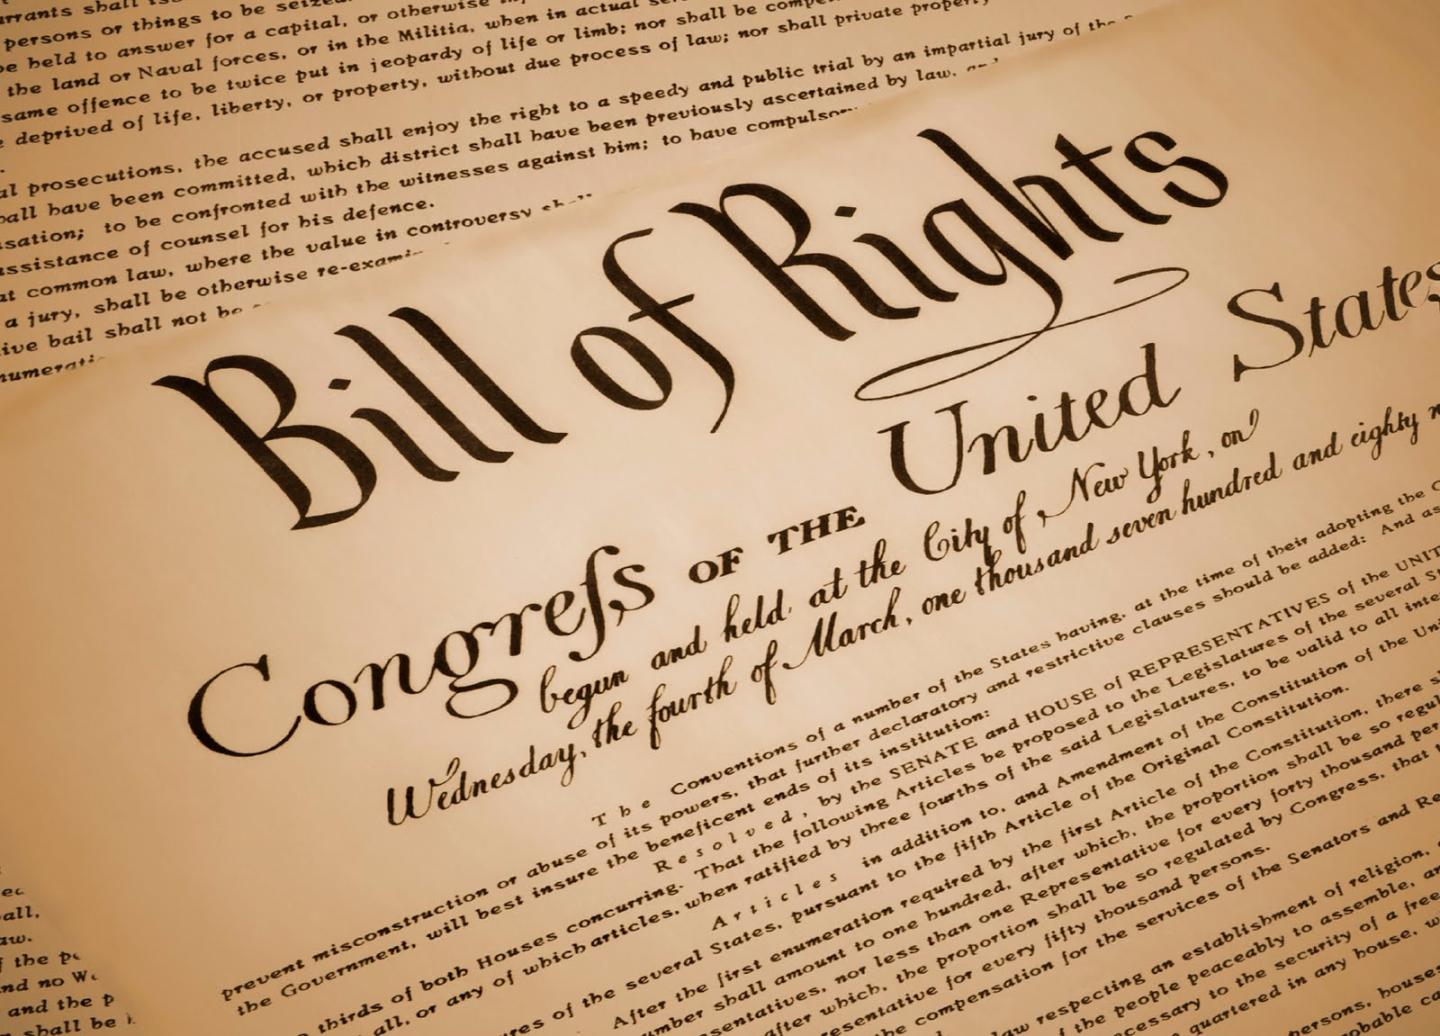 warrants shall
persons or things to be seized.
be held to answer for a capital, or otherwise
the land or Naval forces, or in the Militia, when in actual
same offence to be twice put in jeopardy of life or limb; nor shall be
deprived of life, liberty, or property, without due process of law; nor shall private property
prosecutions, the accused shall enjoy the right to a speedy and public trial by an impartial jury of the
have been committed, which district shall have been previously ascertained by law, and
to be confronted with the witnesses against him; to have compulsory
assistance of counsel for his defence.
at common law, where the value in controversy shall
a jury, shall be otherwise re-exami
bail shall not be
Bill of Rights
Congreſs OF THE United States
begun and held at the City of New York, on
Wednesday, the fourth of March, one thousand seven hundred and eighty n
The Conventions of a number of the States having, at the time of their adopting the C
prevent misconstruction or abuse of its powers, that further declaratory and restrictive clauses should be added: And as
the Government, will best insure the beneficent ends of its institution:
Resolved, by the SENATE and HOUSE of REPRESENTATIVES of the UNIT
thirds of both Houses concurring. That the following Articles be proposed to the Legislatures of the several St
all, or any of which articles, when ratified by three fourths of the said Legislatures, to be valid to all inte
Articles in addition to, and Amendment of the Constitution of the Uni
of the several States, pursuant to the fifth Article of the Original Constitution.
After the first enumeration required by the first Article of the Constitution, there s
shall amount to one hundred, after which, the proportion shall be so regul
nor less than one Representative for every forty thousand per
after which, the proportion shall be so regulated by Congress, that t
for every fifty thousand persons.
compensation for the services of the Senators and Re
respecting an establishment of religion,
of the people peaceably to assemble, an
to the security of a free
quartered in any house, w
persons, houses
probable ca
all,
the pe
and no W
and the p
shall be